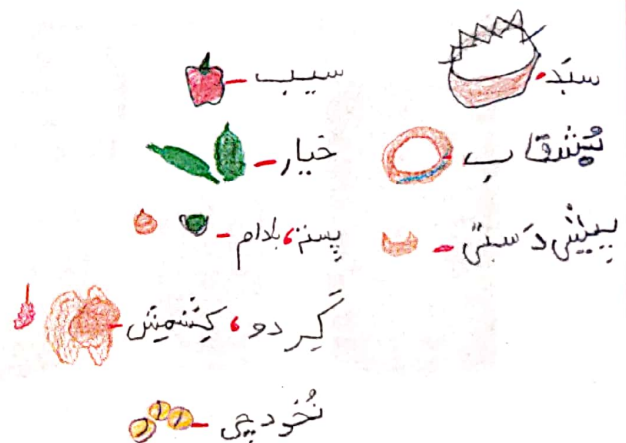 سبَد
بُشقاب
پیِش دَستی
سیب
خیار
پِسته، بادام
گِردو، کِشمِش
نُخودچی